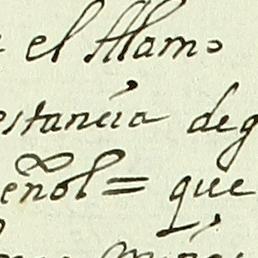 el Alamo
estancia deg
eñol = que